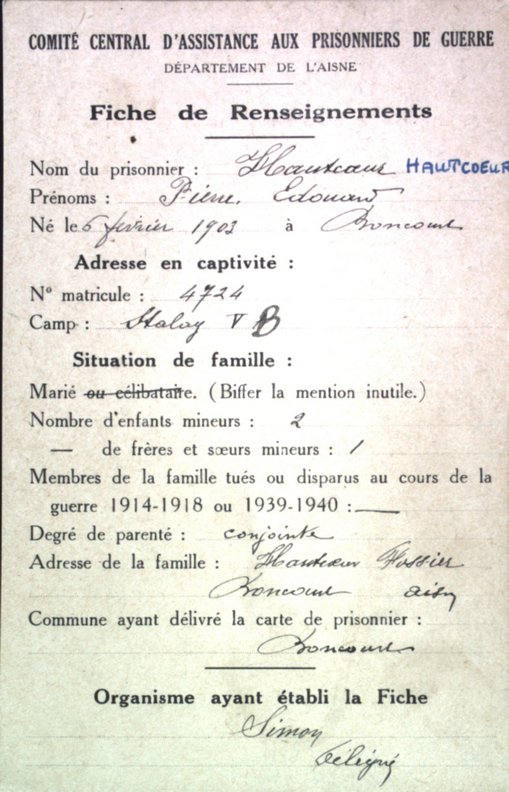 COMITÉ CENTRAL D'ASSISTANCE AUX PRISONNIERS DE GUERRE
DÉPARTEMENT DE L'AISNE
Fiche de Renseignements
Nom du prisonnier : Hautcœur HAUTCOEUR
Prénoms : Pierre. Edouard
Né le 6 fevrier 1903 à Boncourt
Adresse en captivité :
N° matricule : 4724
Camp : Stalag V B
Situation de famille :
Marié ou célibataire. (Biffer la mention inutile.)
Nombre d'enfants mineurs : 2
— de frères et sœurs mineurs : 1
Membres de la famille tués ou disparus au cours de la
guerre 1914-1918 ou 1939-1940 : —
Degré de parenté : conjointe
Adresse de la famille : Hautcœur Fossier
Boncourt Aisne
Commune ayant délivré la carte de prisonnier :
Boncourt
Organisme ayant établi la Fiche
Simon
Délégué